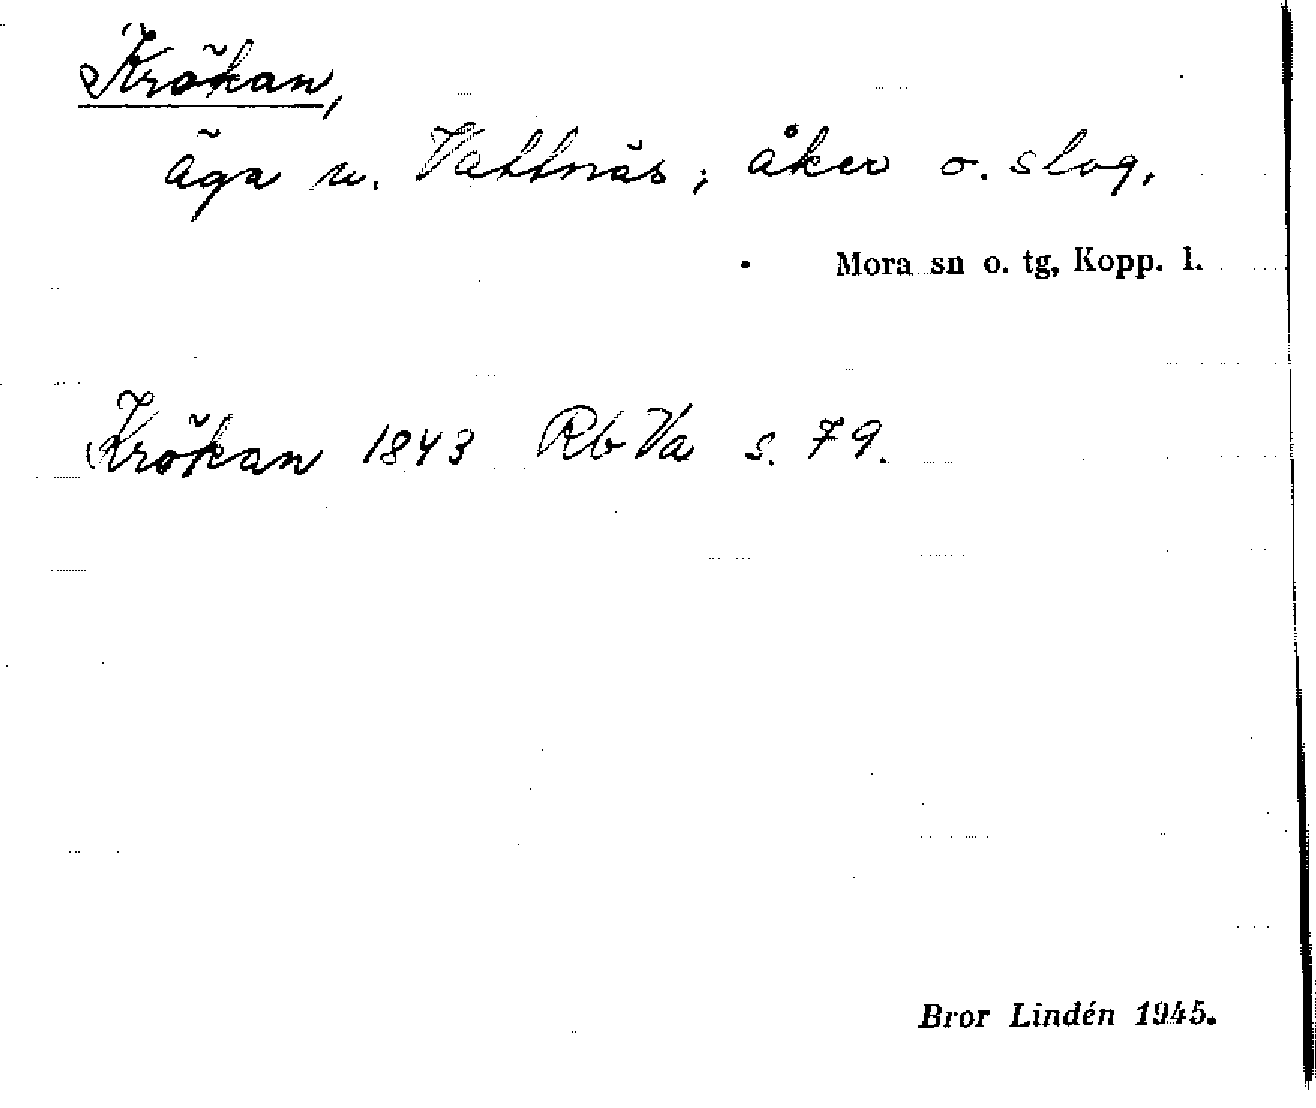 Krökan,
äga u. Vattnäs; åker o. slog.
Mora sn o. tg, Kopp. l.
Krökan 1843 Rb Va s. 79.
Bror Lindén 1945.